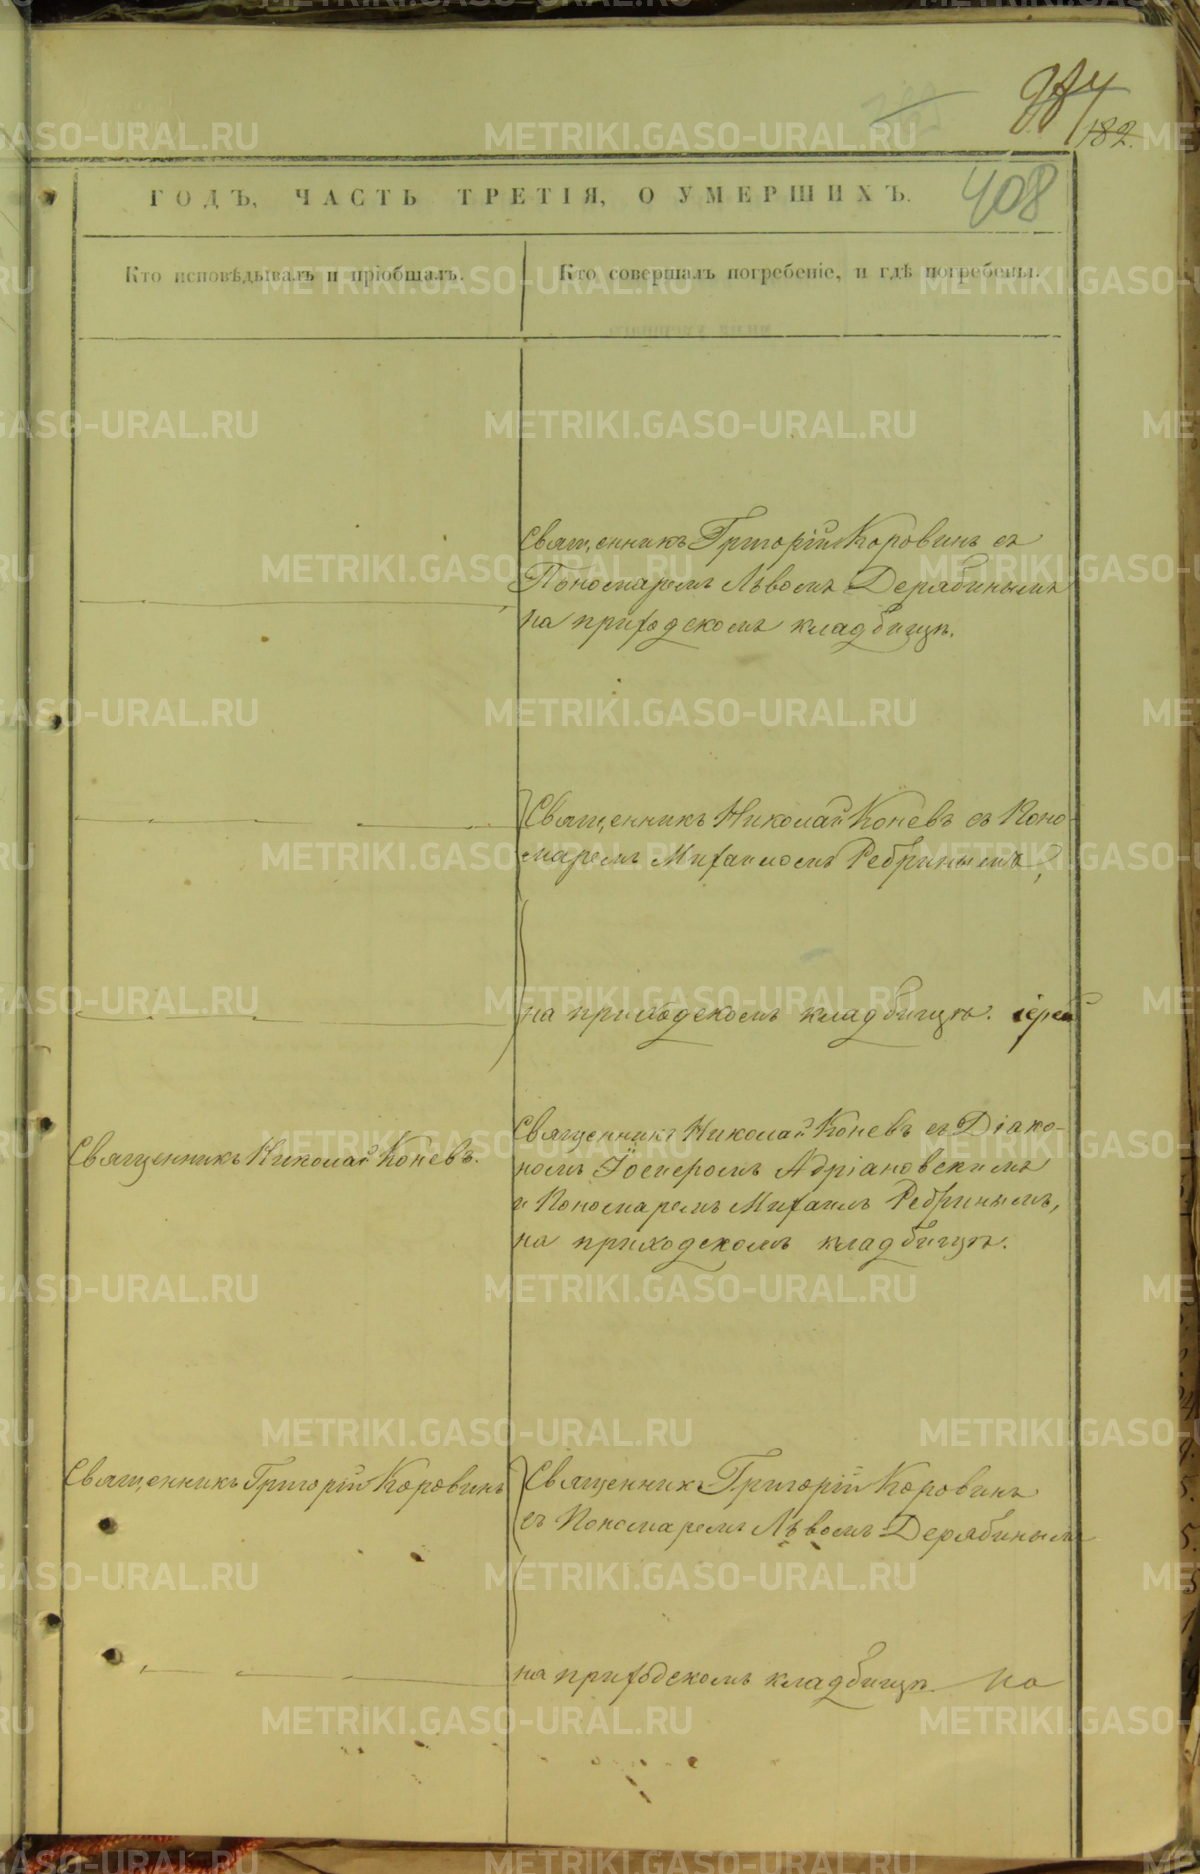 182.
408
ГОДЪ, ЧАСТЬ ТРЕТІЯ, О УМЕРШИХЪ.
Кто исповѣдывалъ и пріобщалъ.
Кто совершалъ погребеніе, и гдѣ погребены.
Священникъ Григорій Коровинъ съ
Пономаремъ Львомъ Дерябинымъ
на приходскомъ кладбищѣ.
Священникъ Николай Коневъ съ Поно-
маремъ Михаиломъ Ребринымъ,
на приходскомъ кладбищѣ. іерей
Священникъ Николай Коневъ.
Священникъ Николай Коневъ съ Діако-
номъ Іосифомъ Адріановскимъ
и Пономаремъ Михаилъ Ребринымъ,
на приходскомъ кладбищѣ.
Священникъ Григорій Коровинъ
Священникъ Григорій Коровинъ
съ Пономаремъ Львомъ Дерябинымъ
на приходскомъ кладбищѣ. Но
METRIKI.GASO-URAL.RU